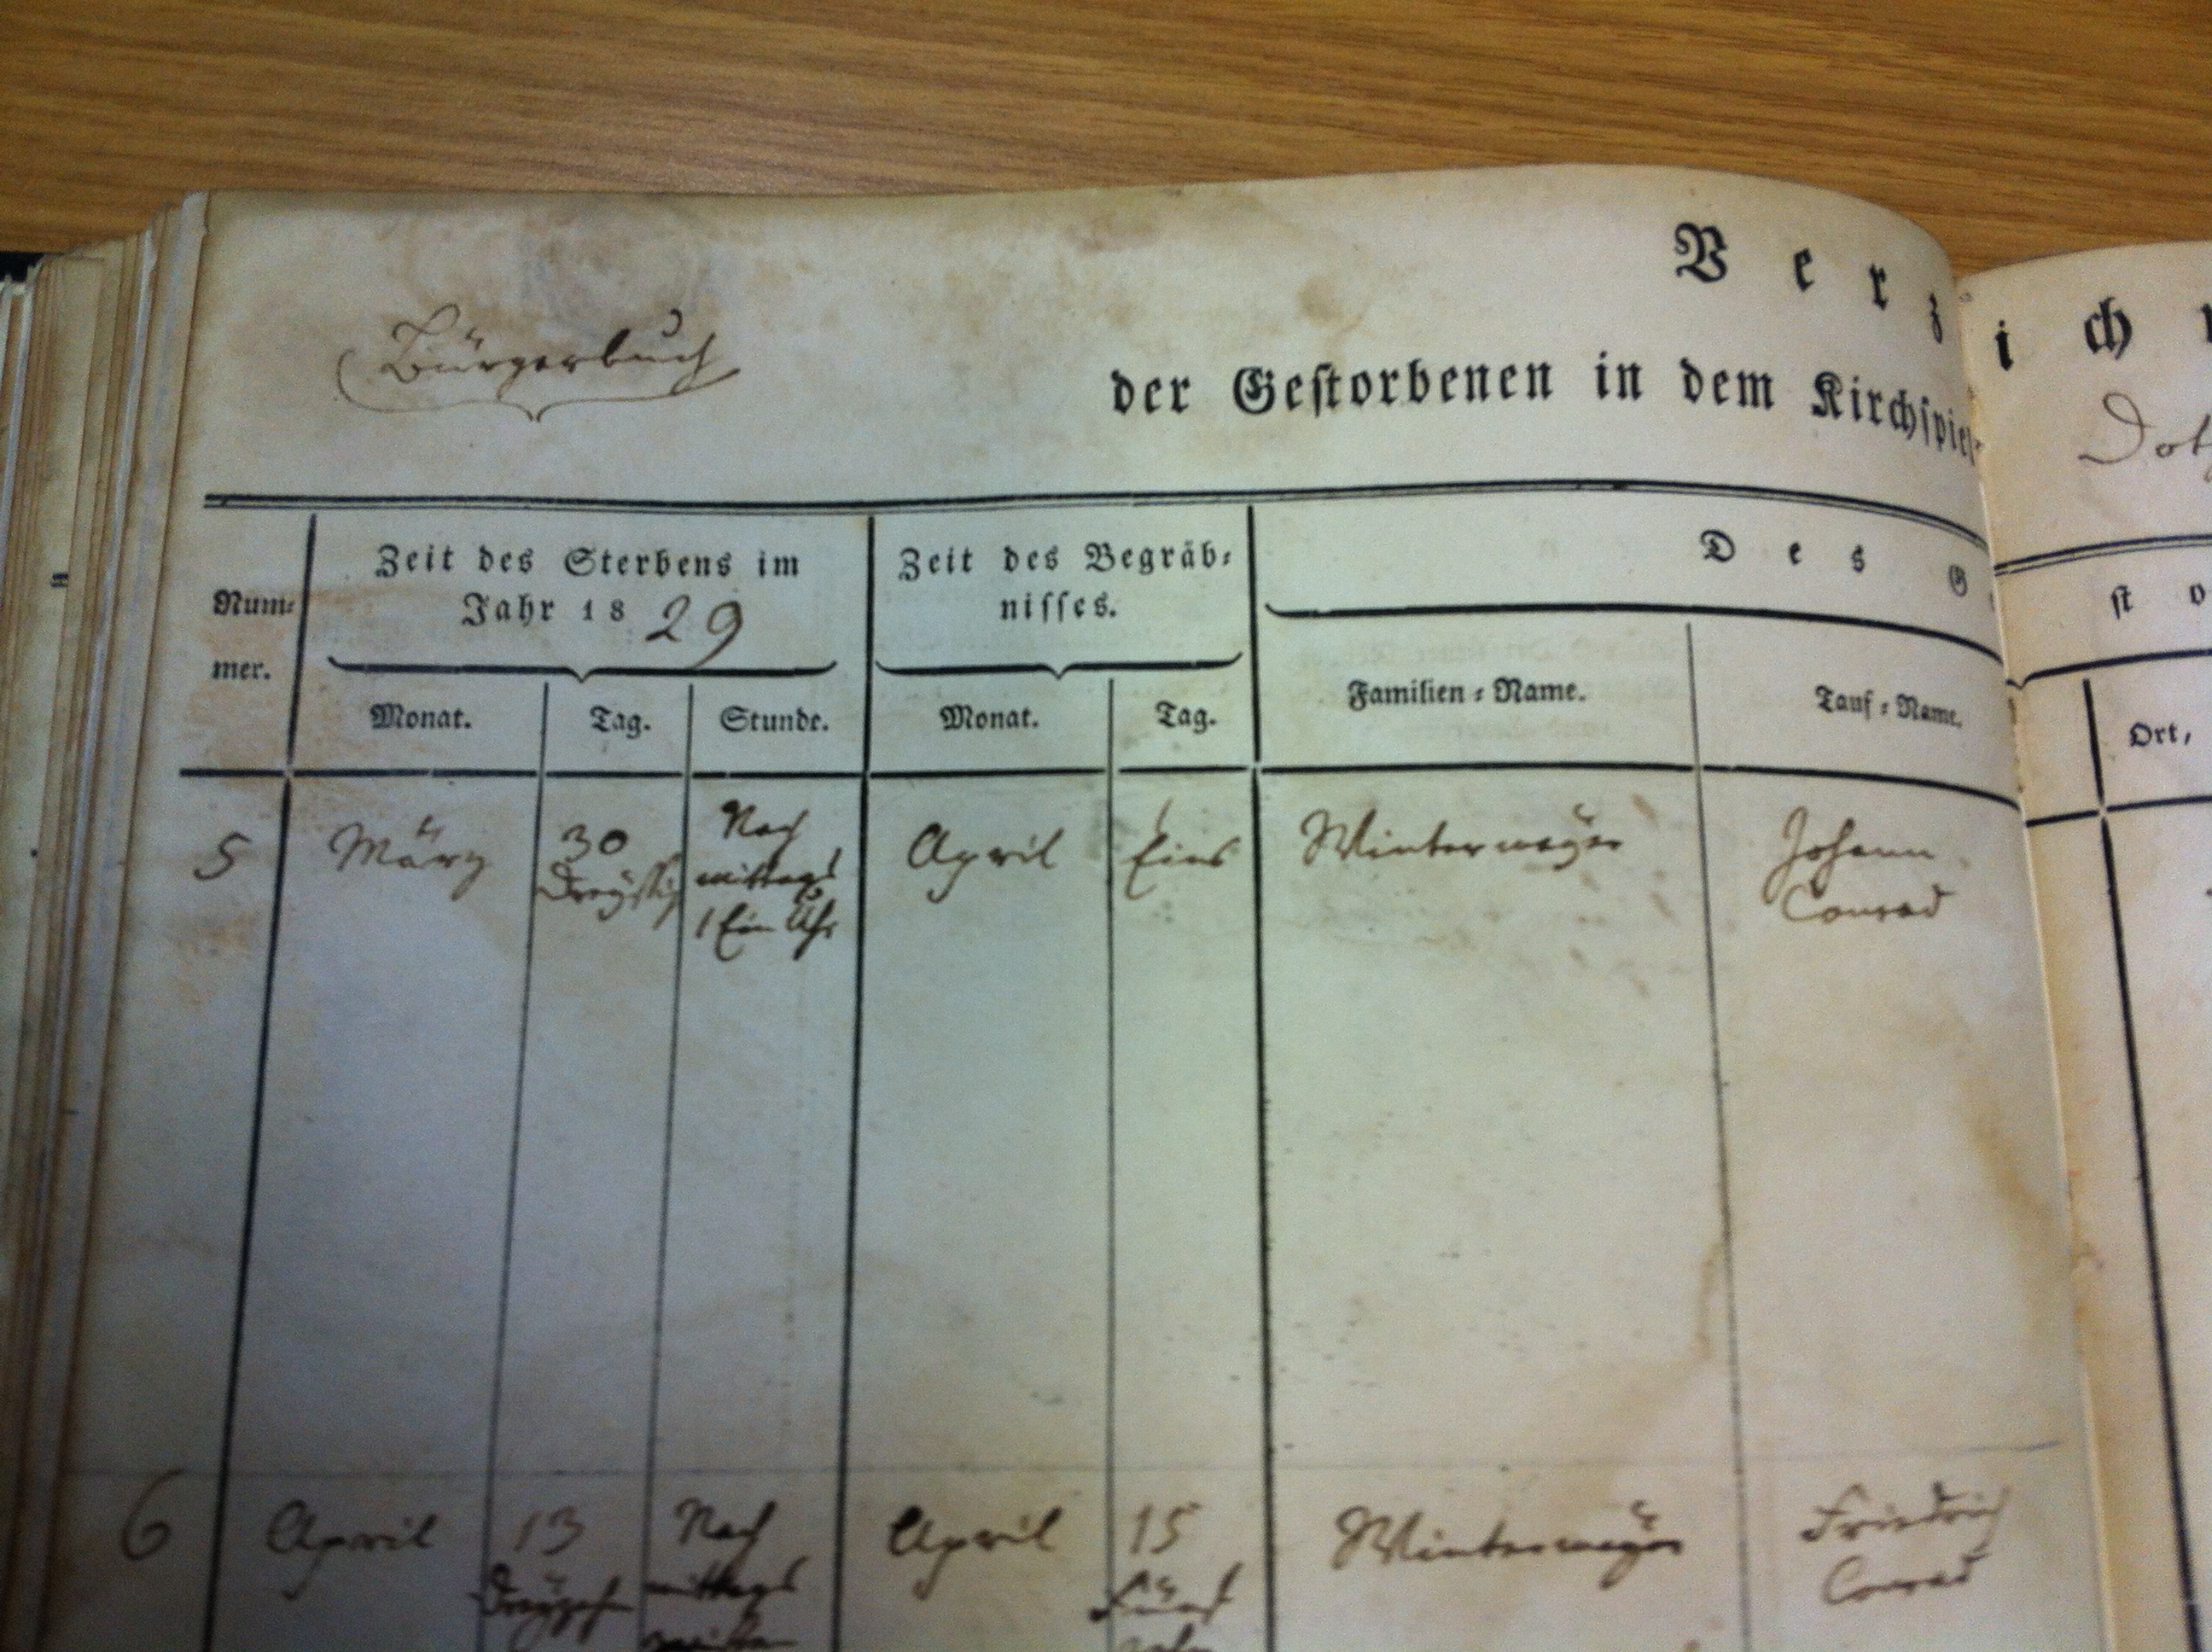 Bürgerbuch
Verz
ich
der Gestorbenen in dem Kirchspiel
Num-
mer.
Zeit des Sterbens im
Jahr 1829
Monat.
Tag.
Stunde.
Zeit des Begräb-
nisses.
Monat.
Tag.
Des G
sto
Familien-Name.
Tauf-Name.
Ort,
5
März
30
Dreyssig
Nach
mittags
1 Ein Uhr
April
1
Eins
Wintermeyer
Johann
Conrad
6
April
13
Dreyzeh
Nach
mittags
April
15
Fünf
zehn
Wintermeyer
Friedrich
Conrad